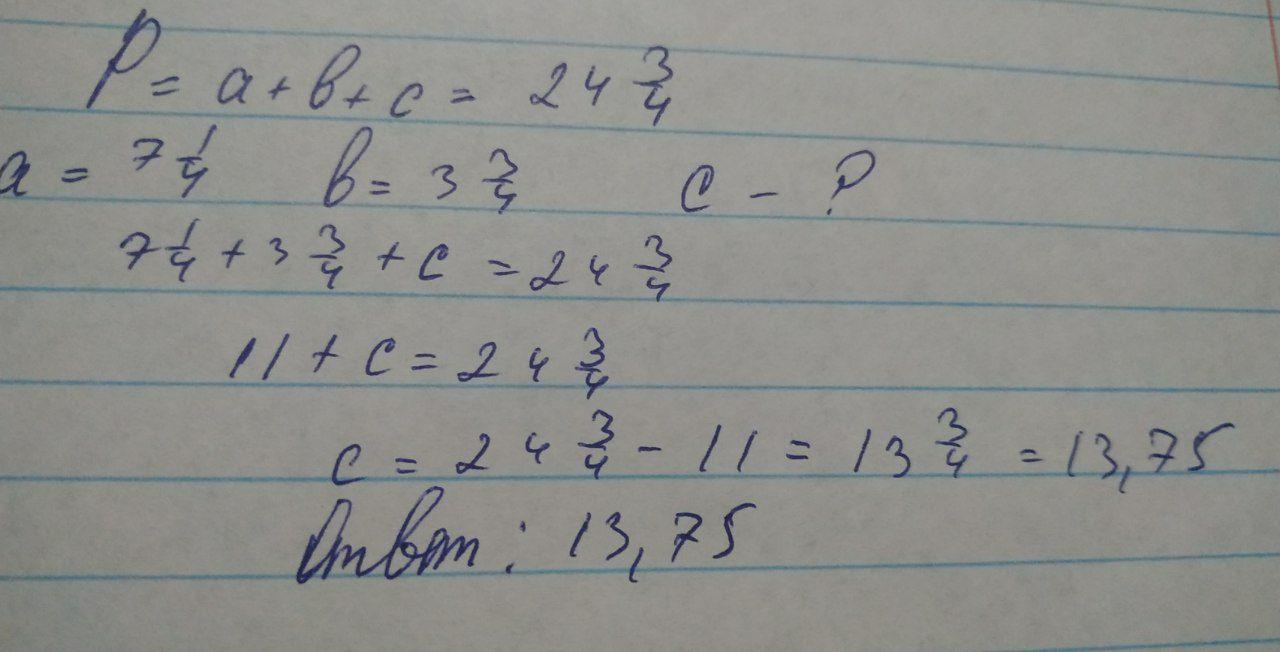 P = a + b + c = 24 3/4
a = 7 1/4 b = 3 3/4 c - ?
7 1/4 + 3 3/4 + c = 24 3/4
11 + c = 24 3/4
c = 24 3/4 - 11 = 13 3/4 = 13,75
Ответ: 13,75